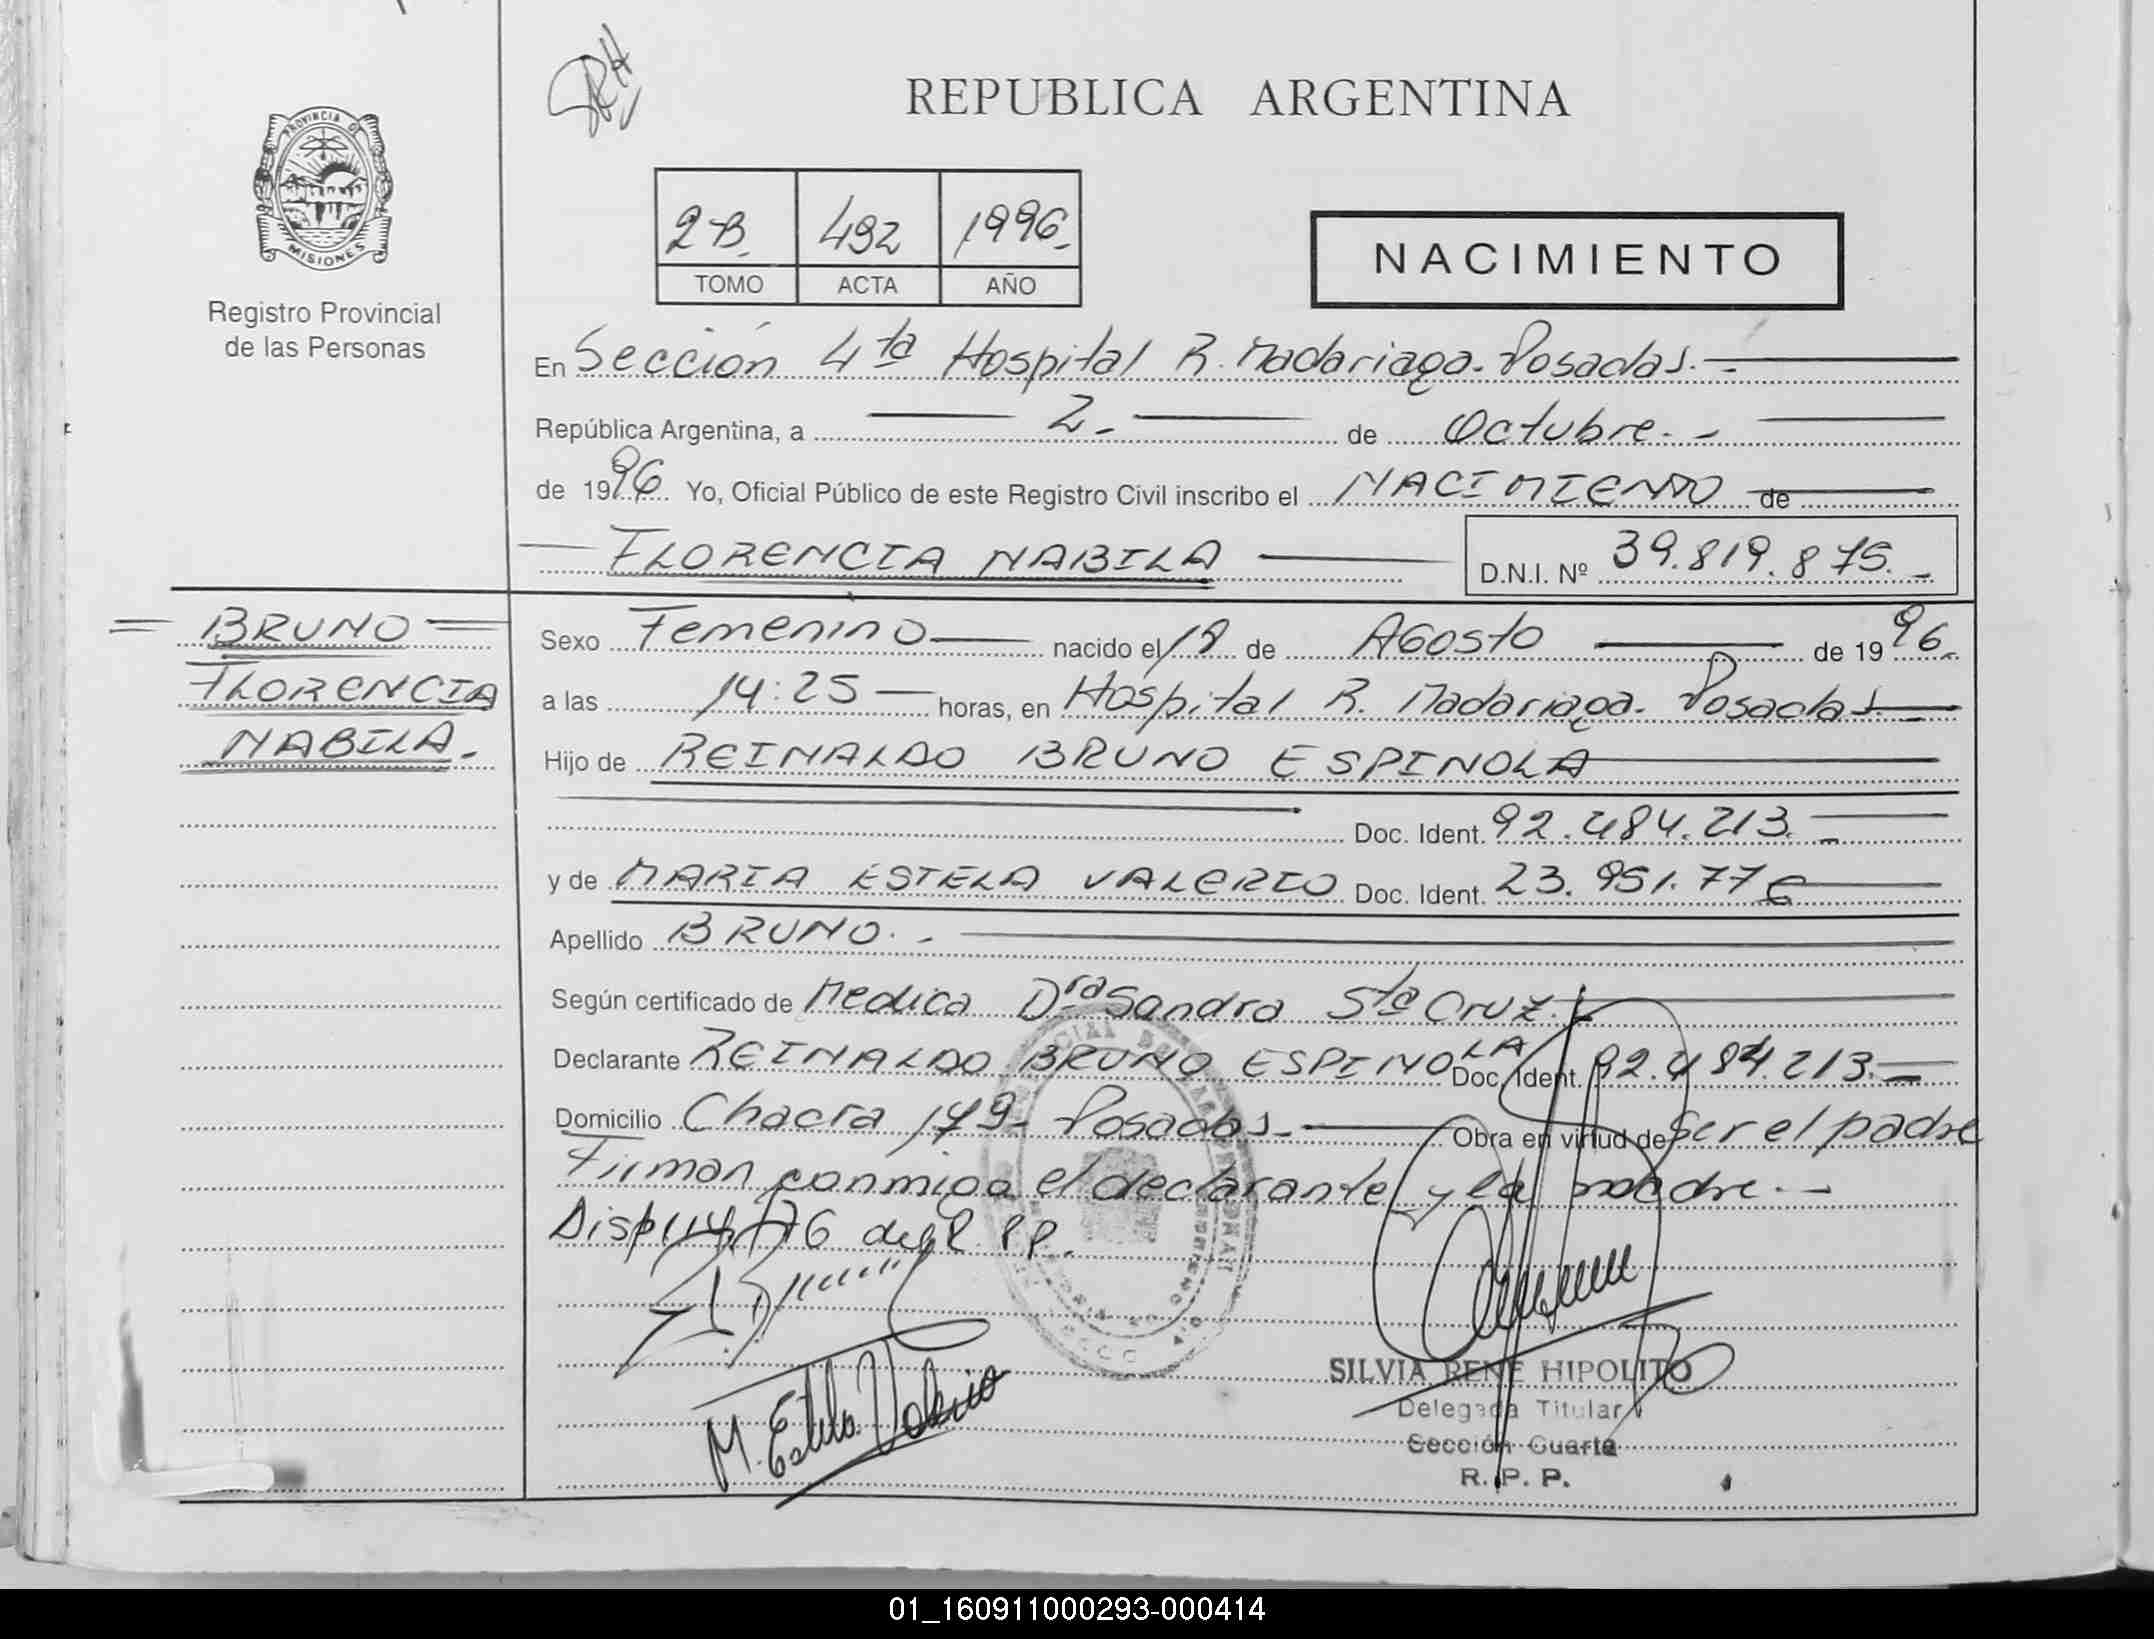 REPUBLICA ARGENTINA
PROVINCIA DE
MISIONES
Registro Provincial
de las Personas
2-B. 492 1996.
TOMO ACTA AÑO
NACIMIENTO
En Sección 4ta Hospital R. Madariaga. Posadas. -
República Argentina, a 2.- de Octubre. -
de 1996 Yo, Oficial Público de este Registro Civil inscribo el NACIMIENTO de
FLORENCIA NABILA D.N.I. Nº 39.819.875. -
= BRUNO =
FLORENCIA
NABILA.
Sexo Femenino nacido el 18 de AGOSTO de 1996.
a las 14:25 horas, en Hospital R. Madariaga. Posadas. -
Hijo de REINALDO BRUNO ESPINOLA
Doc. Ident. 92.484.213. -
y de MARIA ESTELA VALERIO Doc. Ident. 23.951.776
Apellido BRUNO. -
Según certificado de Medica Dra Sandra Sta Cruz. -
Declarante REINALDO BRUNO ESPINOLA Doc. Ident. 92.484.213. -
Domicilio Chacra 179- Posadas. - Obra en virtud de Ser el padre
Firman conmigo el declarante y la madre. -
Disp. 114/76 del R PP.
M. Estela Valerio
SILVIA RENE HIPOLITO
Delegada Titular
Sección Cuarta
R. P. P.
01_160911000293-000414